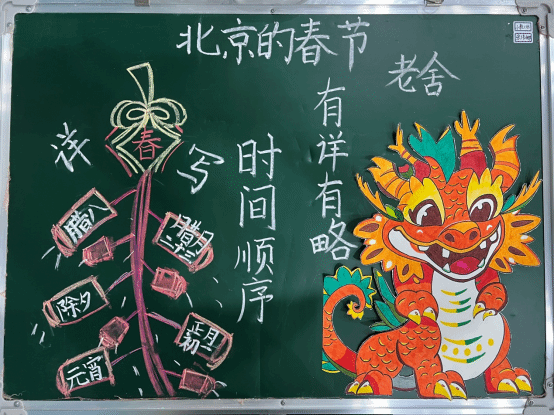 北京的春节
老舍
有详有略
时间顺序
详写
春
腊八
腊月
二十三
除夕
正月
初一
元宵